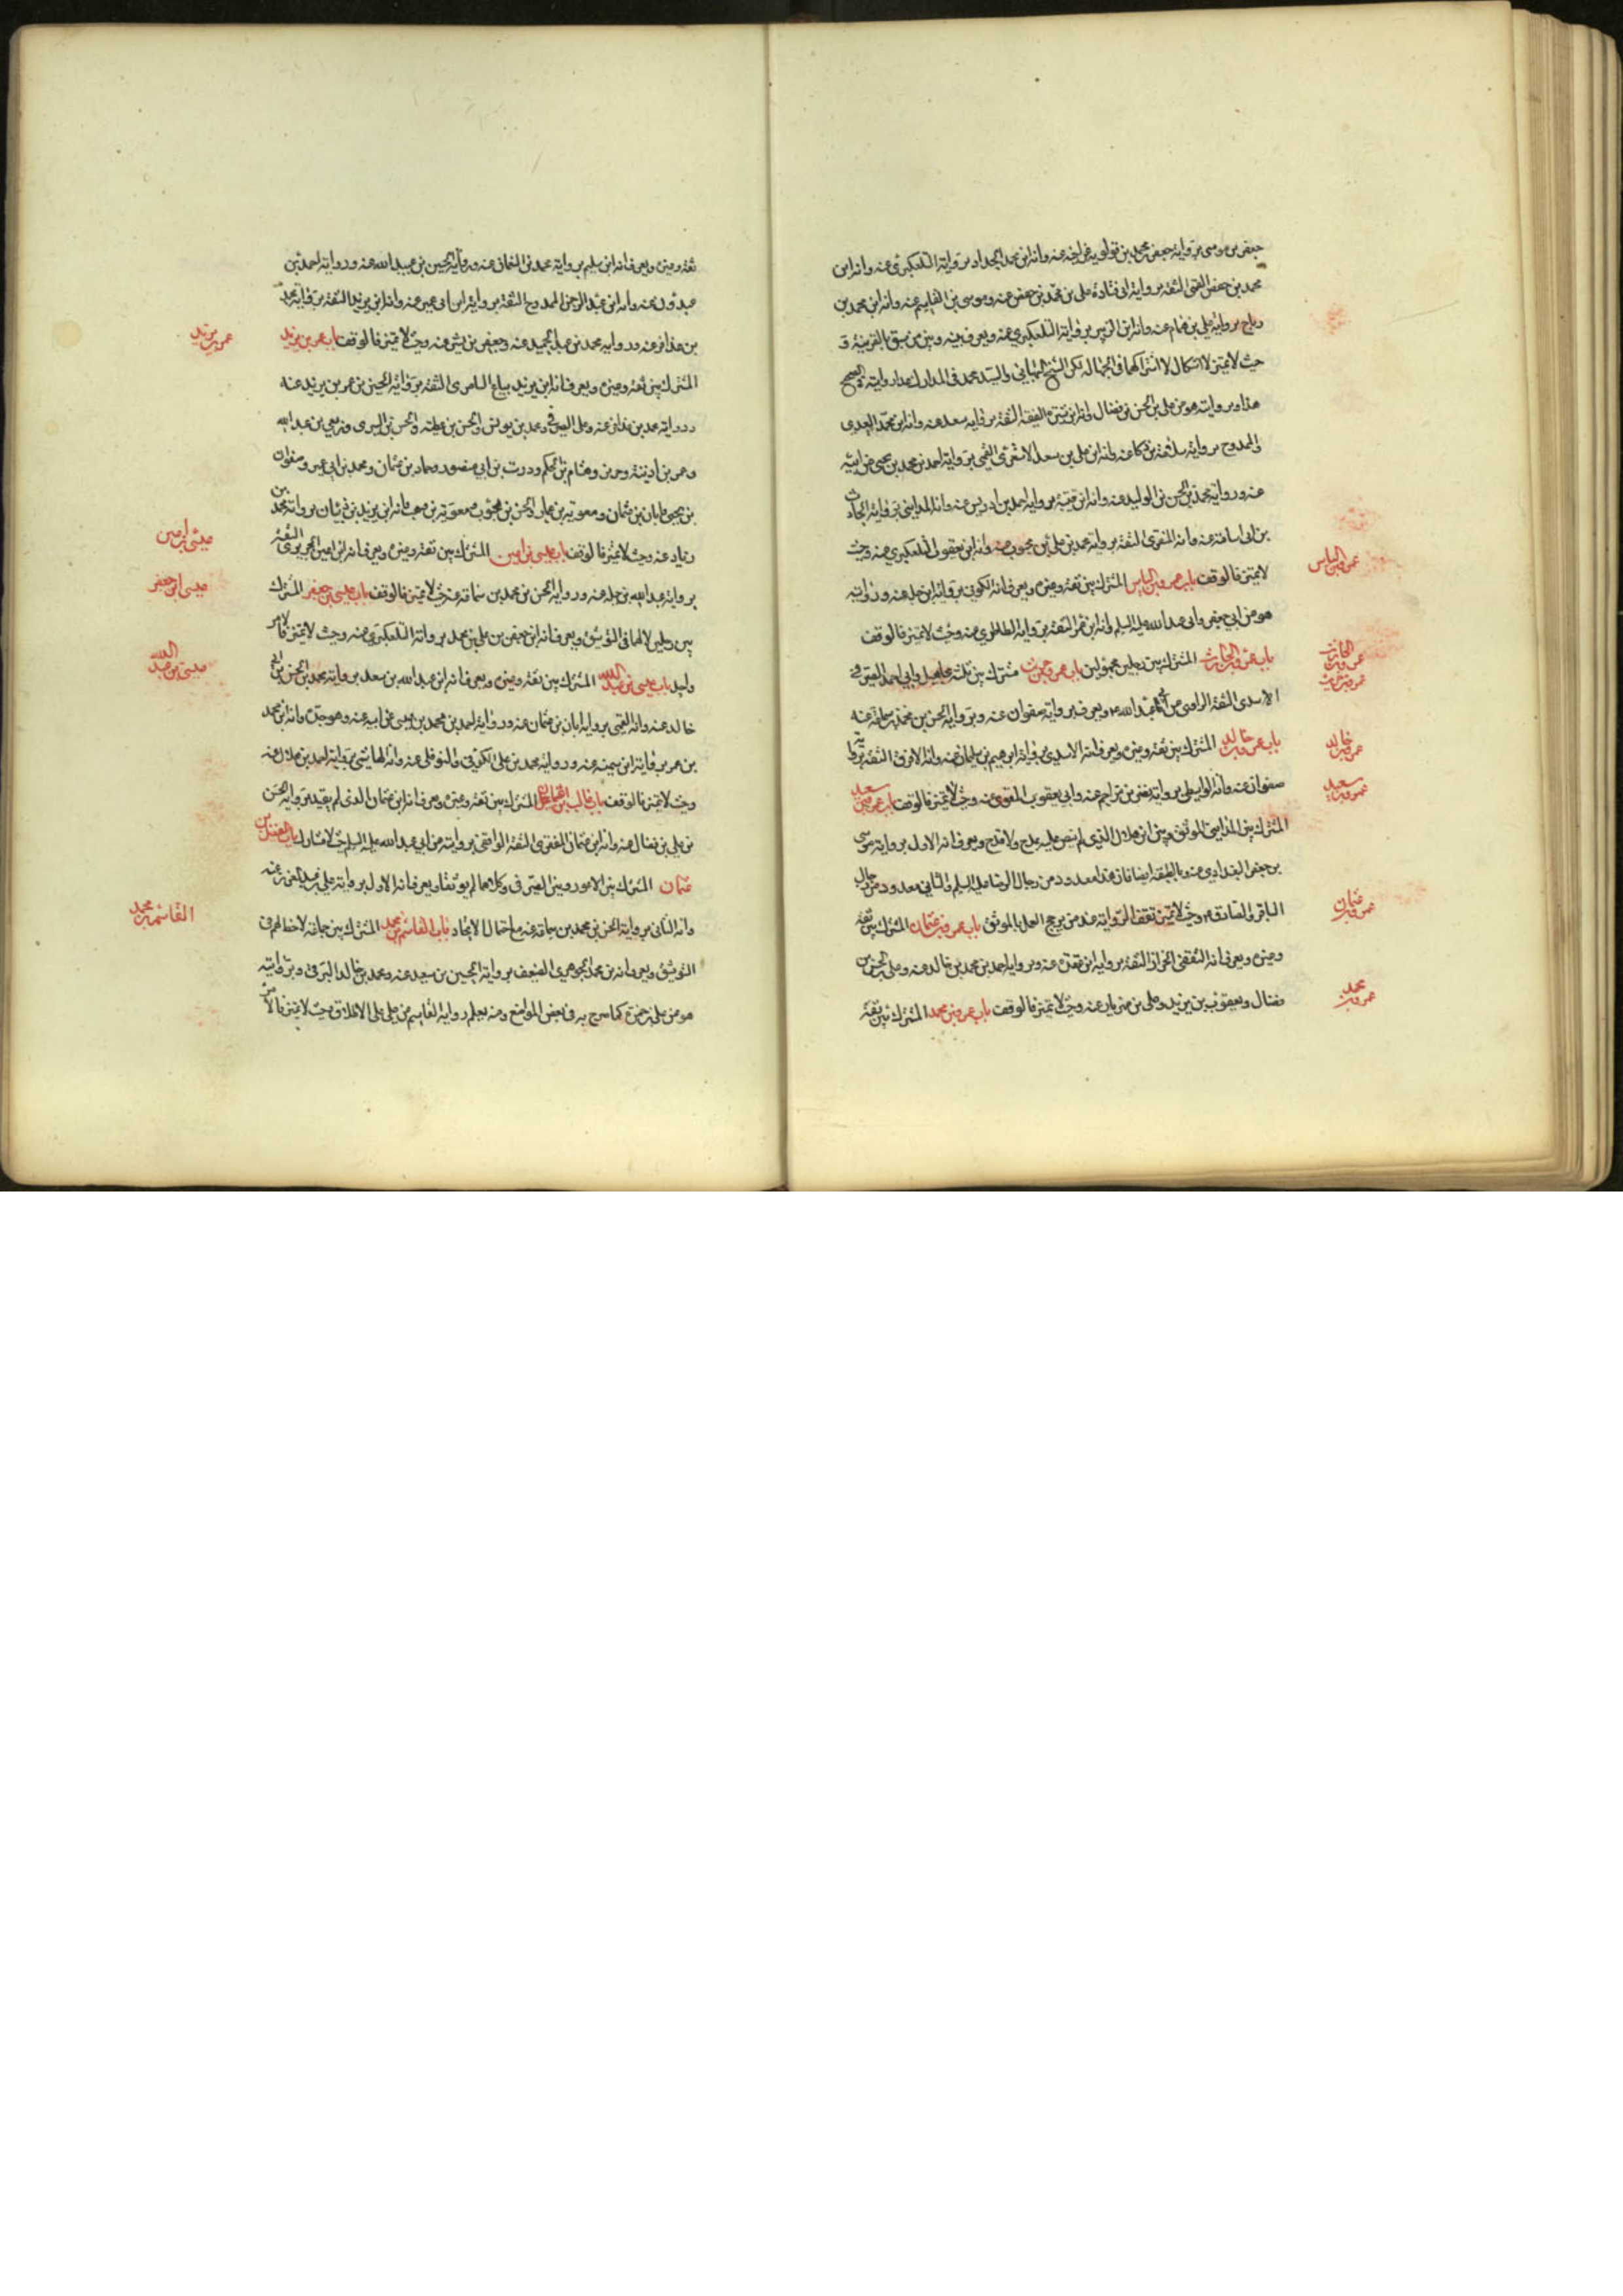 جعفر بن موسى برواية جعفر بن محمد بن قولويه عن اخيه عنه وانه ابن محمد الحداد برواية التلعكبري عنه وانه ابن
محمد بن جعفر القمي الثقة برواية ابي قتادة علي بن محمد بن جعفر عنه وموسى بن القاسم عنه وانه ابن محمد بن
رباح برواية علي بن همام عنه وانه ابن الزبير برواية التلعكبري عنه ويعرف بينه وبين من سبق بالقرينة و
حيث لا تميز لا اشكال لاشتراكهما في الجهالة لكن الشيخ البهائي والسيد محمد في المدارك عدا روايته في الصحيح
هذا وبروايته هو عن علي بن الحسن بن فضال وانه ابن قتيبة الفقيه الثقة برواية سعد عنه وانه ابن محمد العبدي
الممدوح برواية سلامة بن ذكا عنه وانه ابن علي بن سعد الاشعري القمي برواية احمد بن محمد بن يحيى عن ابيه
عنه ورواية محمد بن الحسن بن الوليد عنه وانه ابن قتيبة برواية احمد بن ادريس عنه وانه المدايني برواية الحارث
بن ابي اسامة عنه وانه المنقري الثقة برواية محمد بن علي بن محبوب عنه وانه ابن يعقوب التلعكبري عنه وحيث
لا تميز فالوقف باب عمرو بن الياس المشترك بين ثقة وغيره ويعرف انه الكوفي برواية ابن جبلة عنه وروايته
هو عن ابي جعفر وابي عبد الله عليه السلام وانه ابن ابنه الثقة برواية الطاطري عنه وحيث لا تميز فالوقف
باب عمرو بن الحارث المشترك بين رجلين مجهولين باب عمرو بن حريث مشترك بين ثلثة مجاهيل وابي احمد الصيرفي
الاسدي الثقة الراوي عن ابي عبد الله ع ويعرف برواية صفوان عنه وبرواية الحسن بن محمد بن سماعة عنه
باب عمرو بن خالد المشترك بين ثقة وغيره ويعرف انه الاسدي برواية ابرهيم بن سليمان عنه وانه الافرق الثقة برواية
صفوان عنه وانه الواسطي برواية نصر بن مزاحم عنه وابي يعقوب المقري عنه وحيث لا تميز فالوقف باب عمرو بن سعيد
المشترك بين المدايني الموثق وبين ابن هلال الذي لم ينص عليه بمدح ولا قدح ويعرف انه الاول برواية موسى
بن جعفر البغدادي عنه وبالطبقة ايضا فان هذا معدود من رجال الرضا عليه السلام والثاني معدود من رجال
الباقر والصادق ع وحيث لا تميز تقف الرواية عند من يرجح العمل بالموثق باب عمرو بن عثمان المشترك بين ثقة
وغيره ويعرف انه الثقفي الخزاز الثقة برواية ابن عقدة عنه وبرواية احمد بن محمد بن خالد عنه وعلي بن الحسن بن
فضال ويعقوب بن يزيد وعلي بن مهزيار عنه وحيث لا تميز فالوقف باب عمرو بن محمد المشترك بين ثقة
عمرو بن الياس
عمرو بن الحارث
عمرو بن حريث
عمرو بن خالد
عمرو بن سعيد
عمرو بن عثمان
عمرو بن محمد
ثقة وغيره ويعرف انه ابن سليم برواية محمد بن النعمان عنه ورواية الحسين بن عبيد الله عنه ورواية احمد بن
عبدون عنه وانه ابن عبد الرحمن الممدوح الثقة برواية ابن ابي عمير عنه وانه ابن يزيد الثقة برواية محمد
بن عذافر عنه ورواية محمد بن عبد الحميد عنه وجعفر بن بشير عنه وحيث لا تميز فالوقف باب عمر بن يزيد
المشترك بين ثقة وغيره ويعرف انه ابن يزيد بياع السابري الثقة برواية الحسين بن عمر بن يزيد عنه
ورواية محمد بن عذافر عنه وعلي الصيرفي ومحمد بن يونس والحسن بن عطية والحسن بن السري وربعي بن عبد الله
وعمر بن اذينة وحريز وهشام بن الحكم ودرست بن ابي منصور وحماد بن عثمان ومحمد بن ابي عمير وصفوان
بن يحيى وابان بن عثمان ومعوية بن عمار والحسن بن محبوب ومعوية بن وهب وانه ابن يزيد بن ذبيان برواية محمد بن
زياد عنه وحيث لا تميز فالوقف باب عيسى بن اعين المشترك بين ثقة وغيره ويعرف انه ابن اعين الجريري الثقة
برواية عبد الله بن جبلة عنه ورواية الحسن بن محمد بن سماعة عنه وحيث لا تميز فالوقف باب عيسى بن جعفر المشترك
بين رجلين لا لهما في التوثيق ويعرف انه ابن جعفر بن علي بن محمد برواية التلعكبري عنه وحيث لا تميز فالامر
واحد باب عيسى بن عبد الله المشترك بين ثقة وغيره ويعرف انه ابن عبد الله بن سعد برواية محمد بن الحسن بن ابي
خالد عنه وانه القمي برواية ابان بن عثمان عنه ورواية احمد بن محمد بن عيسى عن ابيه عنه وهو جده وانه ابن محمد
بن عمر برواية ابن سمينه عنه ورواية محمد بن علي الكوفي والنوفلي عنه وانه الهاشمي برواية احمد بن هلال عنه
وحيث لا تميز فالوقف باب غالب بن عثمان المشترك بين ثقة وغيره ويعرف انه ابن عثمان الذي لم يقيد برواية الحسن
بن علي بن فضال عنه وانه ابن عثمان المنقري الثقة الواقفي بروايته عن ابي عبد الله عليه السلام حيث لا مشارك باب الفضل بن
عثمان المشترك بين الاعور وبين الصيرفي وكلاهما لم يوثقا ويعرف انه الاول برواية علي بن عبد العزيز عنه
وانه الثاني برواية الحسن بن محمد بن سماعة عنه مع احتمال الاتحاد باب القاسم بن محمد المشترك بين جماعة لا حظ لهم في
التوثيق ويعرف انه بن محمد الجوهري الضعيف برواية الحسين بن سعيد عنه ومحمد بن خالد البرقي وبروايته
هو عن علي بن حمزة كما صرح به في بعض المواضع ومنه يعلم رواية القاسم عن علي على الاطلاق وحيث لا تميز فالامر
عمر بن يزيد
عيسى بن اعين
عيسى ابن جعفر
عيسى بن عبد الله
القاسم بن محمد